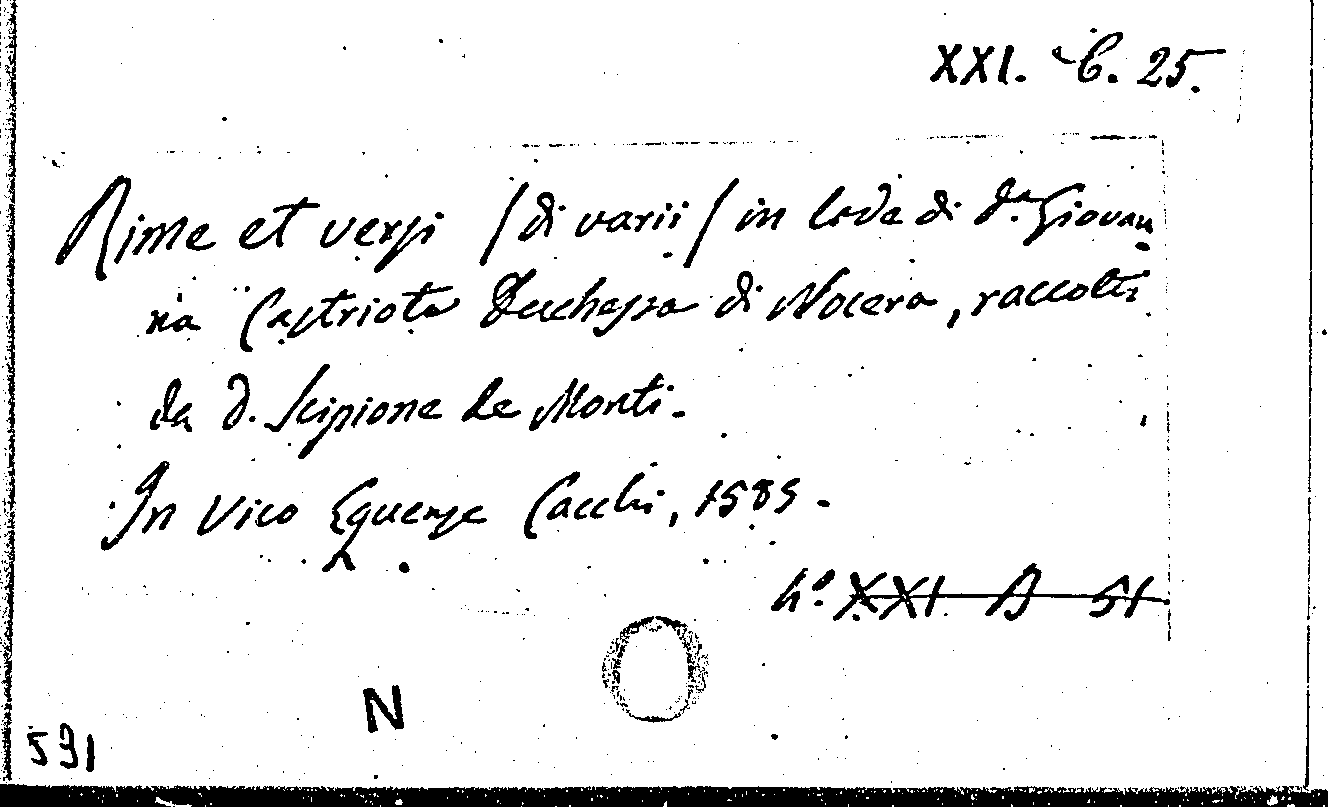 XXI. C. 25.
Rime et versi / di varii / in lode di d.a Giovan
na Castriota Duchessa di Nocera, raccolti
da d. Scipione de Monti.
In Vico Equense Cacchi, 1585.
4.o XXI B 51
N
591